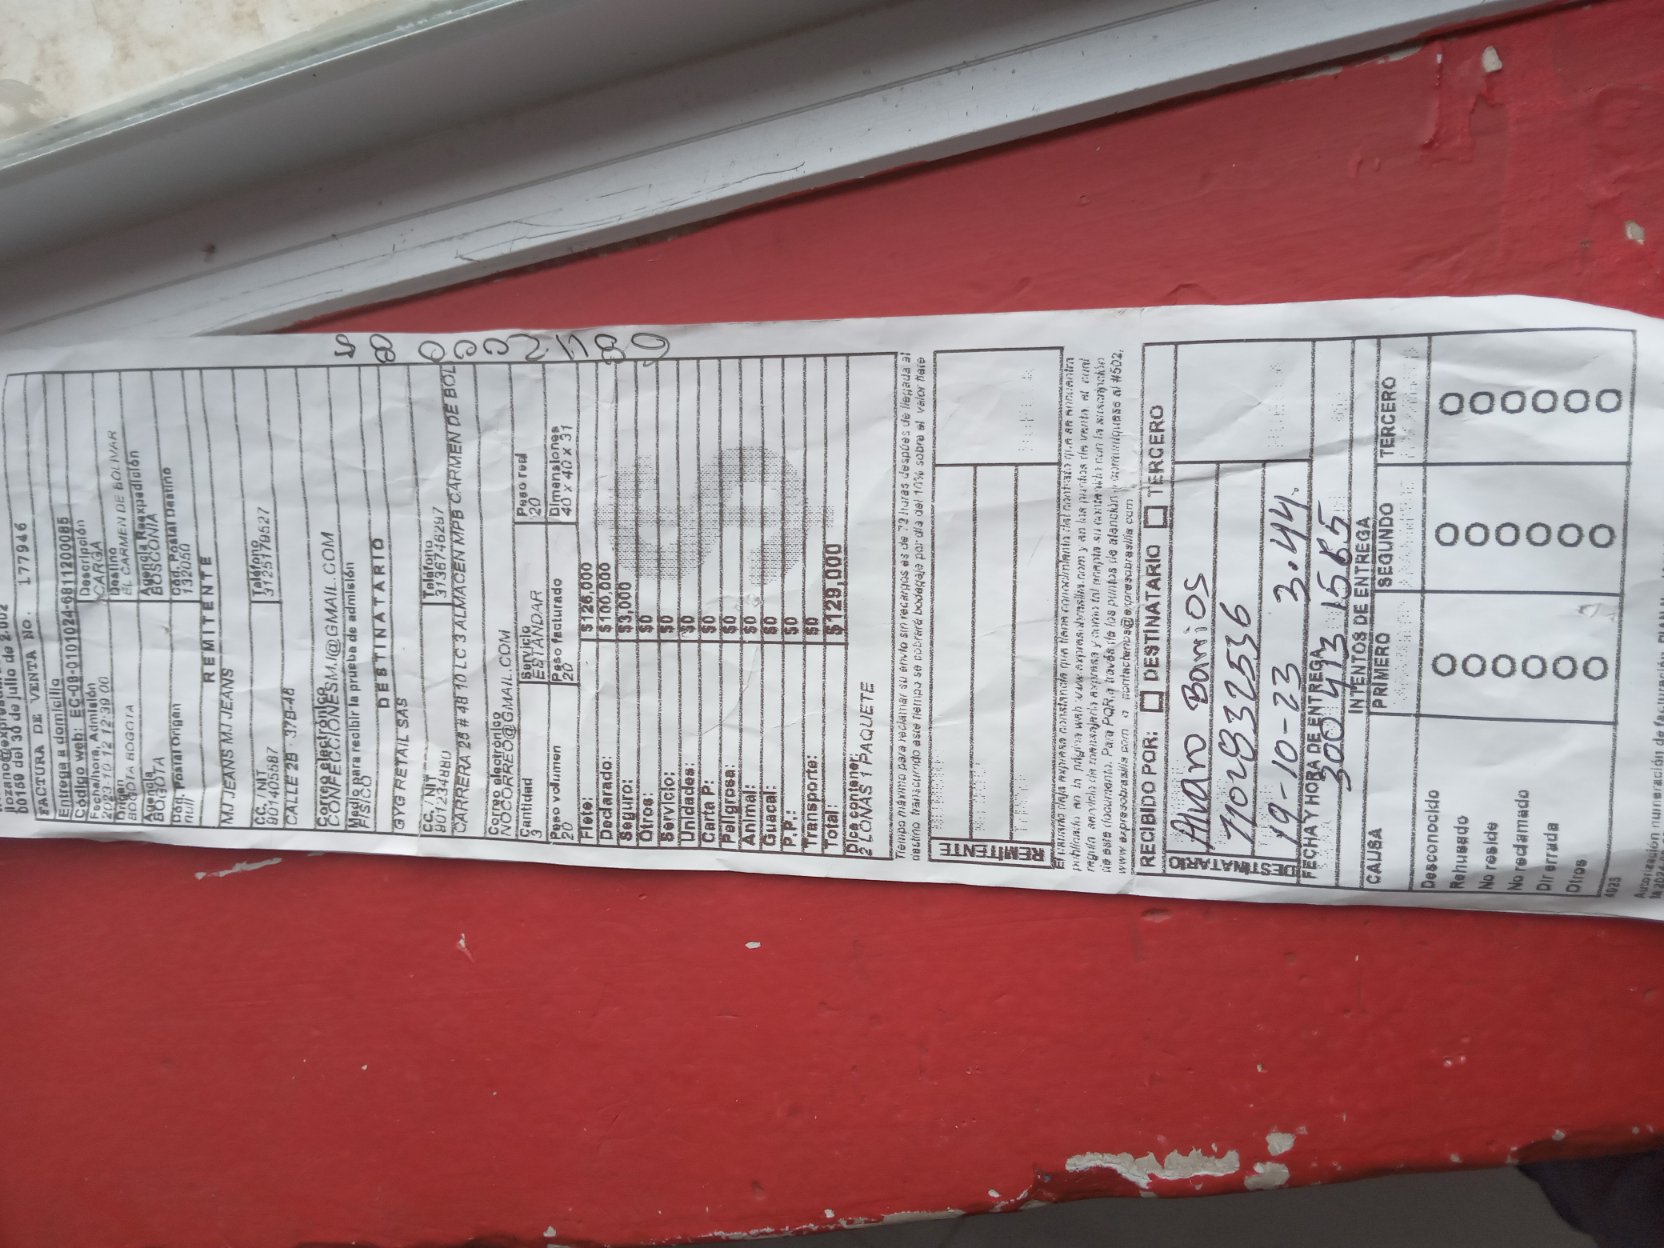 00159 del 30 de julio de 2.002
FACTURA DE VENTA No. 177946
Entrega a domicilio
Código web: EC-08-0101024-6811200085
Fecha/hora, Admisión
2023-10-12 12:39:00
Descripción
CARGA
Origen
BOGOTA BOGOTA
Destino
EL CARMEN DE BOLIVAR
Agencia
BOGOTA
Agencia Reexpedición
BOSCONIA
Cod. Postal Origen
null
Cod. Postal Destino
132050
REMITENTE
MJ JEANS MJ JEANS
CC. / NIT
901405587
Teléfono
3125179527
CALLE 2B - 37B-48
Correo electrónico
CONFECCIONESMJ@GMAIL.COM
Medio para recibir la prueba de admisión
FISICO
DESTINATARIO
GYG RETAIL SAS
CC. / NIT
901234880
Teléfono
3136746297
CARRERA 26 # 48 10 LC 3 ALMACEN MPB CARMEN DE BOL
Correo electrónico
NOCORREO@GMAIL.COM
Cantidad
3
Servicio
ESTANDAR
Peso real
20
Peso volumen
20
Peso facturado
20
Dimensiones
40 x 40 x 31
Flete: $126,000
Declarado: $100,000
Seguro: $3,000
Otros: $0
Servicio: $0
Unidades: $0
Carta P: $0
Peligrosa: $0
Animal: $0
Guacal: $0
P.P.: $0
Transporte: $0
Total: $129,000
Dice contener:
2 LONAS 1 PAQUETE
Tiempo máximo para reclamar su envío sin recargos es de 72 horas después de llegada al
destino transcurrido este tiempo se cobrará bodegaje por día del 10% sobre el valor flete
REMITENTE
El usuario deja expresa constancia que tiene conocimiento del contrato que se encuentra
publicado en la página web www.expresobrasilia.com y en los puntos de venta, el cual
regula servicio de mensajería expresa y como tal acepta su contenido con la suscripción
de este documento. Para PQR a través de los puntos de atención y comuníquese al #502,
www.expresobrasilia.com o contactenos@expresobrasilia.com
RECIBIDO POR: DESTINATARIO TERCERO
DESTINATARIO
Alvaro Barrios
19-10-23 3:44.
FECHA Y HORA DE ENTREGA
INTENTOS DE ENTREGA
CAUSA PRIMERO SEGUNDO TERCERO
Desconocido
Rehusado
No reside
No reclamado
Dir errada
Otros